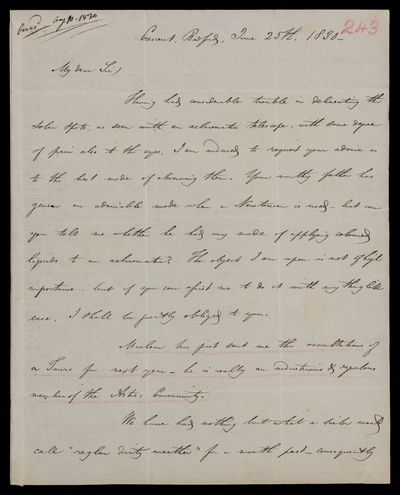 Aug 10. 1830
243
Crescent, Bedford, June 25th. 1830 -
My dear Sir,
Having had considerable trouble in delineating the
Solar Spots, as seen with an achromatic telescope, with some degree
of pain also to the eyes, I am induced to request your advice as
to the best mode of observing them. Your worthy father has
given an admirable mode when a Newtonian is used - but can
you tell me whether he had any mode of applying coloured
liquids to an achromatic? The object I am upon is not of high
importance - but if you can assist me to do it with any thing like
ease, I shall be greatly obliged to you.
Maclear has just sent me the occultations of
α Tauri for next year - he is really an industrious & zealous
member of the Astron: Community.
We have had nothing but what a sailor would
call "reglar dirty weather" for a month past - consequently